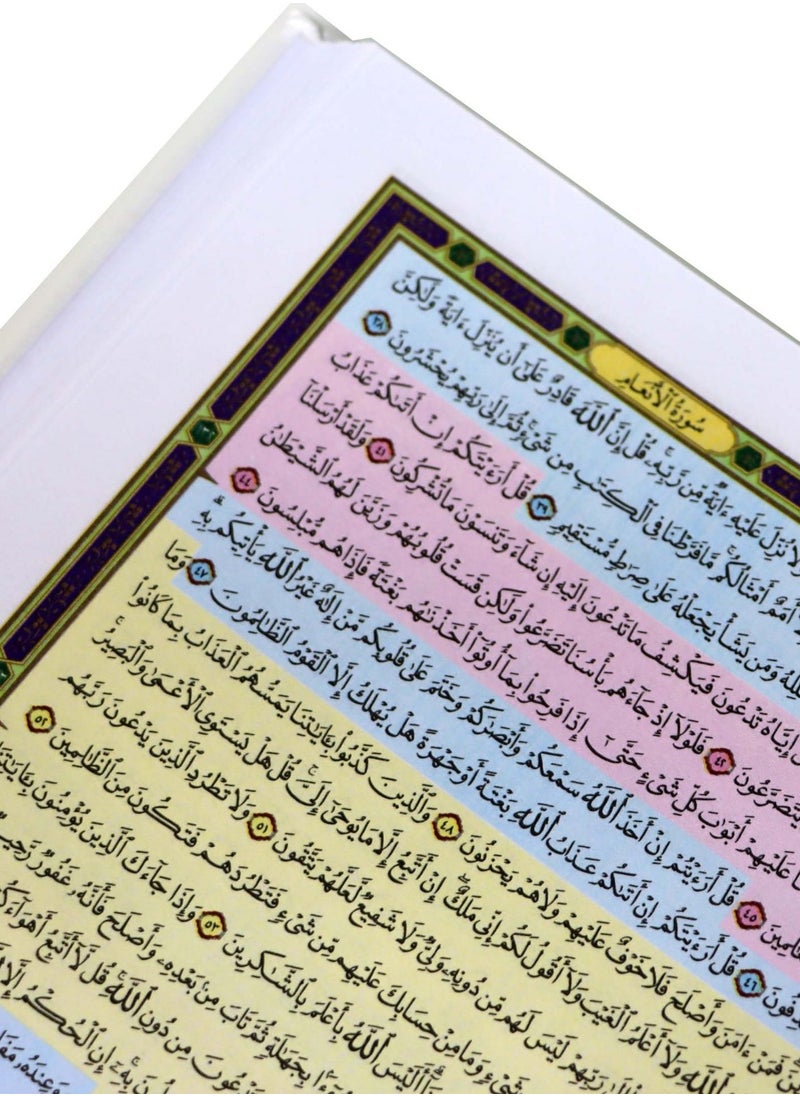 سُورَةُ الْأَنْعَامِ
نُزِّلَ عَلَيْهِ ءَايَةٌ مِّن رَّبِّهِۦ قُلْ إِنَّ ٱللَّهَ قَادِرٌ عَلَىٰٓ أَن يُنَزِّلَ ءَايَةً وَلَٰكِنَّ
أُمَمٌ أَمْثَالُكُم مَّا فَرَّطْنَا فِى ٱلْكِتَٰبِ مِن شَىْءٍ ثُمَّ إِلَىٰ رَبِّهِمْ يُحْشَرُونَ ٣٨
وَمَن يَشَأْ يَجْعَلْهُ عَلَىٰ صِرَٰطٍ مُّسْتَقِيمٍ ٣٩ قُلْ أَرَءَيْتَكُمْ إِنْ أَتَىٰكُمْ عَذَابُ
إِيَّاهُ تَدْعُونَ فَيَكْشِفُ مَا تَدْعُونَ إِلَيْهِ إِن شَآءَ وَتَنسَوْنَ مَا تُشْرِكُونَ ٤١ وَلَقَدْ أَرْسَلْنَآ
يَتَضَرَّعُونَ ٤٢ فَلَوْلَآ إِذْ جَآءَهُم بَأْسُنَا تَضَرَّعُوا۟ وَلَٰكِن قَسَتْ قُلُوبُهُمْ وَزَيَّنَ لَهُمُ ٱلشَّيْطَٰنُ
عَلَيْهِمْ أَبْوَٰبَ كُلِّ شَىْءٍ حَتَّىٰٓ إِذَا فَرِحُوا۟ بِمَآ أُوتُوٓا۟ أَخَذْنَٰهُم بَغْتَةً فَإِذَا هُم مُّبْلِسُونَ ٤٤
٤٥ قُلْ أَرَءَيْتُمْ إِنْ أَخَذَ ٱللَّهُ سَمْعَكُمْ وَأَبْصَٰرَكُمْ وَخَتَمَ عَلَىٰ قُلُوبِكُم مَّنْ إِلَٰهٌ غَيْرُ ٱللَّهِ يَأْتِيكُم بِهِ
٤٦ قُلْ أَرَءَيْتَكُمْ إِنْ أَتَىٰكُمْ عَذَابُ ٱللَّهِ بَغْتَةً أَوْ جَهْرَةً هَلْ يُهْلَكُ إِلَّا ٱلْقَوْمُ ٱلظَّٰلِمُونَ ٤٧ وَمَا
فَمَنْ ءَامَنَ وَأَصْلَحَ فَلَا خَوْفٌ عَلَيْهِمْ وَلَا هُمْ يَحْزَنُونَ ٤٨ وَٱلَّذِينَ كَذَّبُوا۟ بِـَٔايَٰتِنَا يَمَسُّهُمُ ٱلْعَذَابُ بِمَا كَانُوا۟
ٱللَّهِ وَلَآ أَعْلَمُ ٱلْغَيْبَ وَلَآ أَقُولُ لَكُمْ إِنِّى مَلَكٌ إِنْ أَتَّبِعُ إِلَّا مَا يُوحَىٰٓ إِلَىَّ قُلْ هَلْ يَسْتَوِى ٱلْأَعْمَىٰ وَٱلْبَصِيرُ
رَبِّهِمْ لَيْسَ لَهُم مِّن دُونِهِۦ وَلِىٌّ وَلَا شَفِيعٌ لَّعَلَّهُمْ يَتَّقُونَ ٥١ وَلَا تَطْرُدِ ٱلَّذِينَ يَدْعُونَ رَبَّهُم
شَىْءٍ وَمَا مِنْ حِسَابِكَ عَلَيْهِم مِّن شَىْءٍ فَتَطْرُدَهُمْ فَتَكُونَ مِنَ ٱلظَّٰلِمِينَ ٥٢
أَلَيْسَ ٱللَّهُ بِأَعْلَمَ بِٱلشَّٰكِرِينَ ٥٣ وَإِذَا جَآءَكَ ٱلَّذِينَ يُؤْمِنُونَ بِـَٔايَٰتِنَا
بِجَهَٰلَةٍ ثُمَّ تَابَ مِنۢ بَعْدِهِۦ وَأَصْلَحَ فَأَنَّهُۥ غَفُورٌ رَّحِيمٌ
تَدْعُونَ مِن دُونِ ٱللَّهِ قُل لَّآ أَتَّبِعُ أَهْوَآءَكُمْ
بِهِۦٓ إِنِ ٱلْحُكْمُ إِلَّا
وَعِندَهُۥ